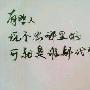 有些人
说不出哪里好
可就是谁都代替